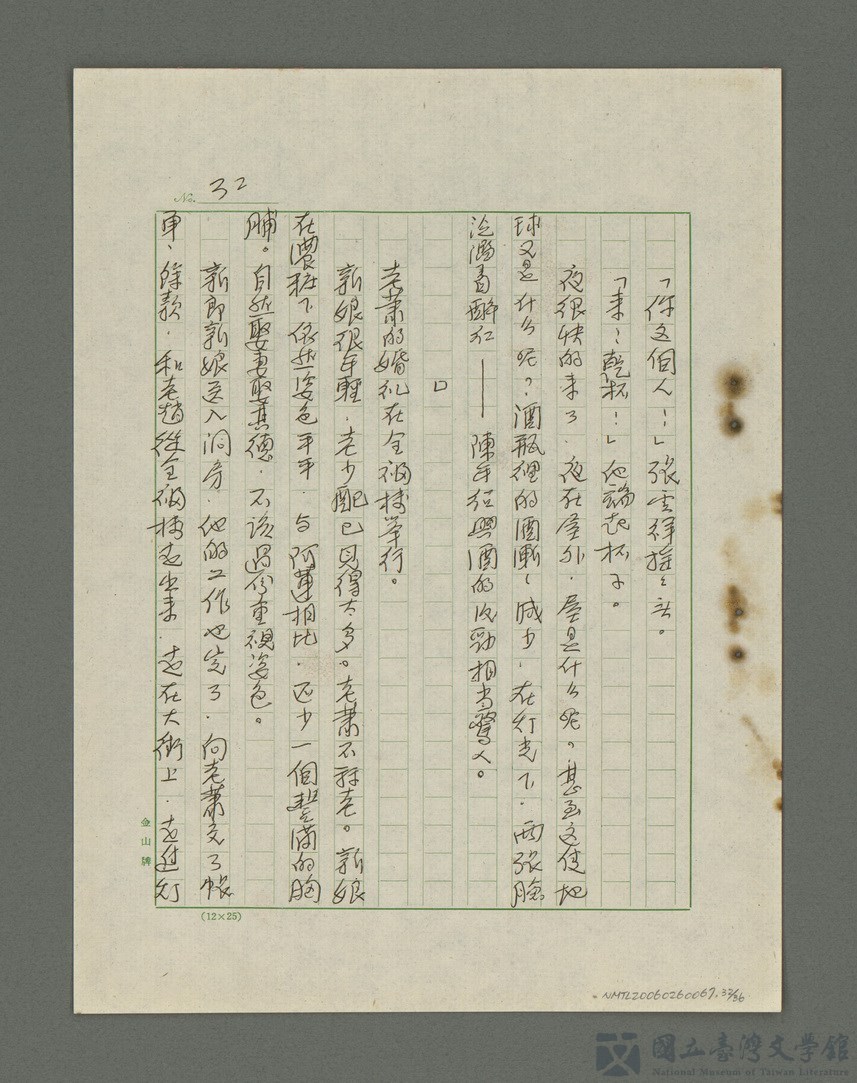 No. 32
「你这個人!」張雲祥摇々头。
「来!乾杯!」他端起杯子。
夜很快的来了.夜在屋外.屋是什么呢?甚至这使地
球又是什么呢?酒瓶裡的酒漸々减少.在灯光下.两張臉
泛濁着酔红——陳年绍興酒的後勁相当驚人。
口
老萧的婚礼在全福楼举行。
新娘很年輕.老少配已見得太多。老萧不算老。新娘
在濃粧下依然姿色平平.与阿蓮相比.还少一個豐满的胸
脯。自然娶妻娶其德.不该過份重視姿色。
新郎新娘送入洞房.他的工作也完了.向老萧交了帳
单、餘款.和老趙從全福楼走出来.走在大街上.走進灯
金山牌
(12×25)
NMTL20060260067.32/36
國立臺灣文學館
National Museum of Taiwan Literature